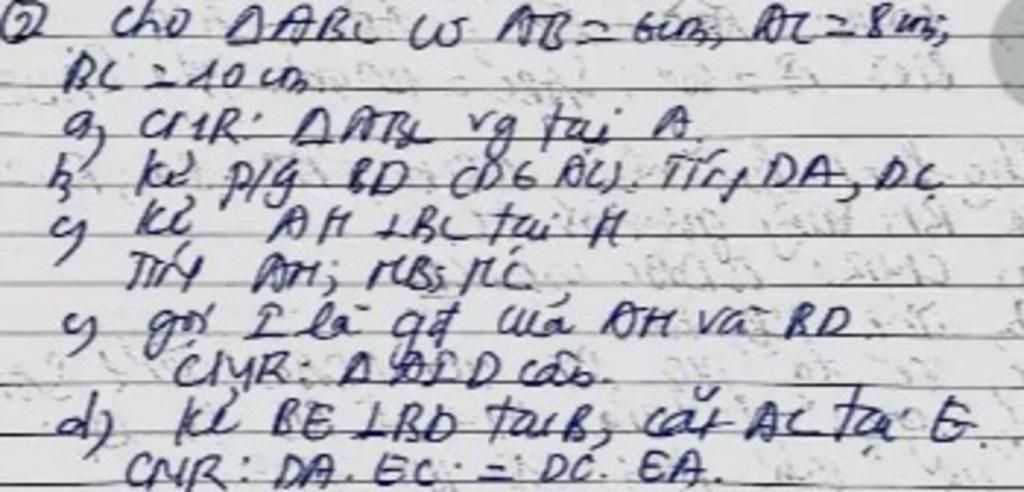 ② Cho ΔABC có AB = 6cm, AC = 8cm,
BC = 10 cm
a, CMR: ΔABC vg tại A.
b, Kẻ p/g BD (D∈AC). Tính DA, DC
c, Kẻ AH ⊥BC tại H
Tính AH; HB; HC
c, gọi I là gđ của AH và BD
CMR: ΔAID cân.
d, Kẻ BE ⊥BD tại B, cắt AC tại E.
CMR: DA. EC = DC. EA.